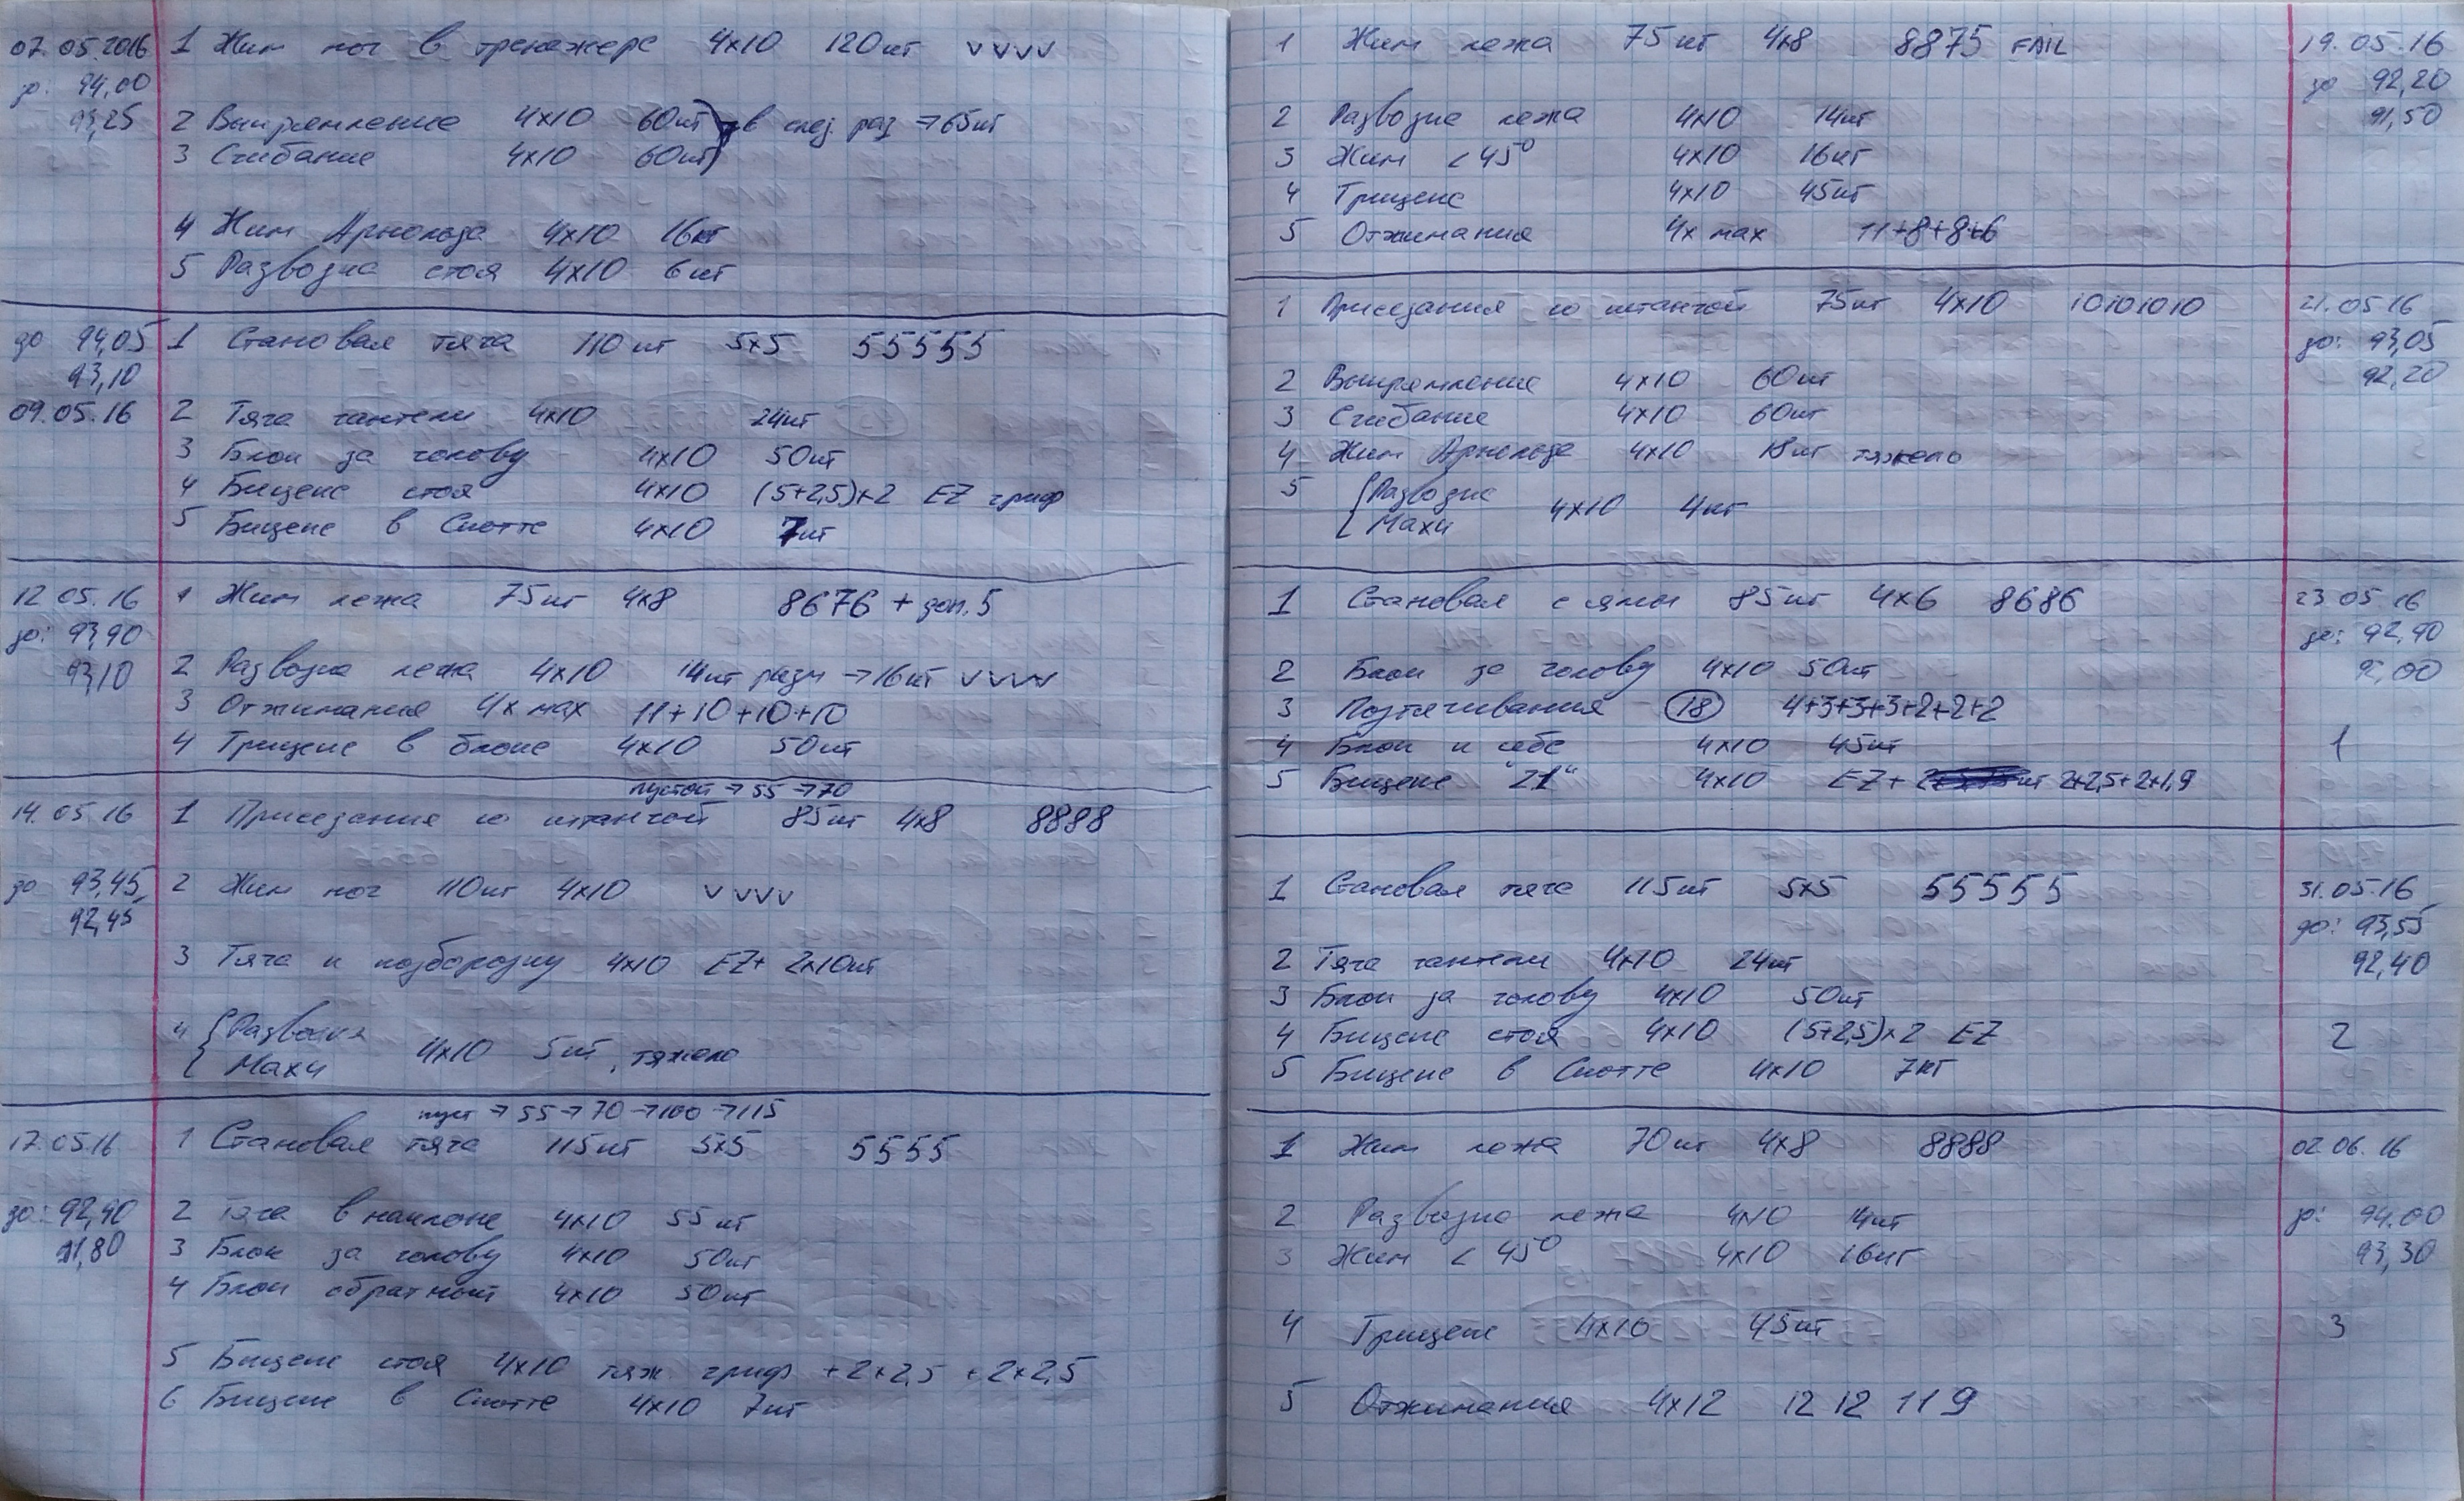 07.05.2016 1 Жим ног в тренажере 4x10 120кг vvvv
до: 94,00
93,25 2 Выпрямление 4x10 60кг } в след. раз → 65кг
3 Сгибание 4x10 60кг
4 Жим Арнольда 4x10 16кг
5 Разводка стоя 4x10 6кг
до 94,05 1 Становая тяга 110кг 5x5 55555
93,10
09.05.16 2 Тяга гантели 4x10 24кг
3 Блок за голову 4x10 50кг
4 Бицепс стоя 4x10 (5+2,5)x2 EZ гриф
5 Бицепс в Скотте 4x10 7кг
12.05.16 1 Жим лежа 75кг 4x8 8676 + доп. 5
до: 93,90
93,10 2 Разводка лежа 4x10 14кг разм → 16кг vvvv
3 Отжимания 4x max 11+10+10+10
4 Трицепс в блоке 4x10 50кг
пустой → 55 → 70
14.05.16 1 Приседания со штангой 85кг 4x8 8888
до 93,45 2 Жим ног 110кг 4x10 vvvv
92,45
3 Тяга к подбородку 4x10 EZ+ 2x10кг
4 { Разводка
Махи 4x10 5кг, тяжело
пуст → 55 → 70 → 100 → 115
17.05.16 1 Становая тяга 115кг 5x5 5555
до: 92,40 2 Тяга в наклоне 4x10 55кг
91,80 3 Блок за голову 4x10 50кг
4 Блок обратный 4x10 50кг
5 Бицепс стоя 4x10 тяж. гриф +2x2,5 +2x2,5
6 Бицепс в Скотте 4x10 7кг
1 Жим лежа 75кг 4x8 8875 FAIL 19.05.16
до 92,20
2 Разводка лежа 4x10 14кг 91,50
3 Жим < 45° 4x10 16кг
4 Трицепс 4x10 45кг
5 Отжимания 4x max 11+8+8+6
1 Приседания со штангой 75кг 4x10 10101010 21.05.16
до: 93,05
2 Выпрямление 4x10 60кг 92,20
3 Сгибание 4x10 60кг
4 Жим Арнольда 4x10 18кг тяжело
5 { Разводка
Махи 4x10 4кг
1 Становая с ямы 85кг 4x6 8686 23.05.16
до: 92,90
2 Блок за голову 4x10 50кг
3 Подтягивания (18) 4+3+3+3+2+2+2
4 Блок к себе 4x10 45кг 1
5 Бицепс "21" 4x10 EZ+ 2x2,5+2x1,9
1 Становая тяга 115кг 5x5 55555 31.05.16
до: 93,55
2 Тяга гантели 4x10 24кг 92,40
3 Блок за голову 4x10 50кг
4 Бицепс стоя 4x10 (5+2,5)x2 EZ 2
5 Бицепс в Скотте 4x10 7кг
1 Жим лежа 70кг 4x8 8888 02.06.16
2 Разводка лежа 4x10 14кг до: 94,00
3 Жим < 45° 4x10 16кг 93,30
4 Трицепс 4x10 45кг 3
5 Отжимания 4x12 12 12 11 9